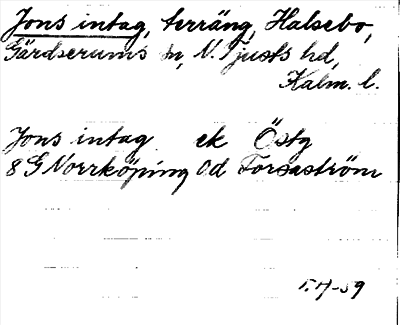 Jons intag, terräng, Halsebo,
Gärdserums sn, N. Tjusts hd,
Kalm. l.
Jons intag ek Östg
8 G Norrköping Od Forsaström
T.H-59